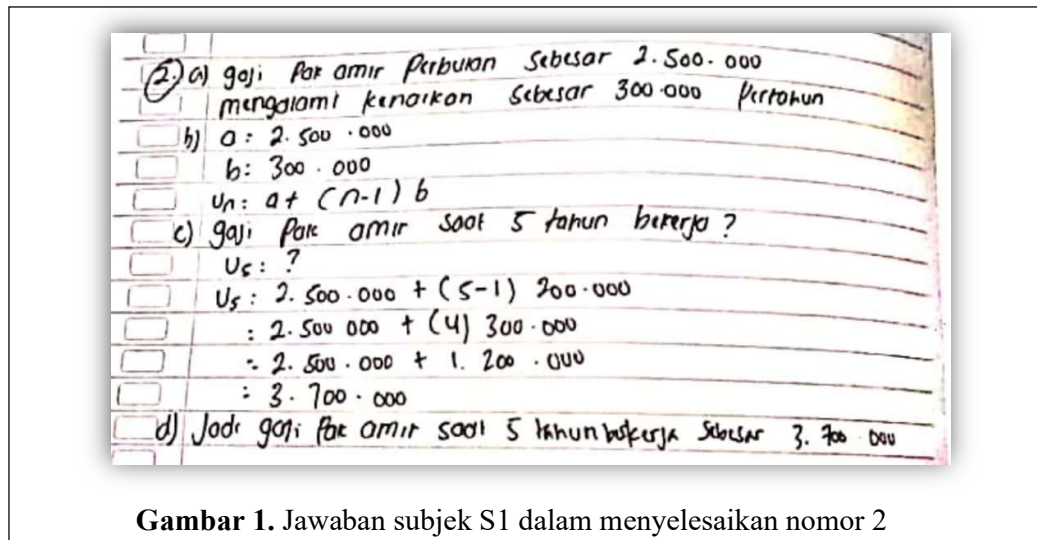 2.) a) gaji Pak amir Perbulan Sebesar 2.500.000
mengalami kenaikan Sebesar 300.000 Pertahun
b) a : 2.500.000
b : 300.000
Un : a + (n-1) b
c) gaji Pak amir saat 5 tahun bekerja ?
U5 : ?
U5 : 2.500.000 + (5-1) 200.000
: 2.500 000 + (4) 300.000
: 2.500.000 + 1.200.000
: 3.700.000
d) Jadi gaji Pak amir saat 5 tahun bekerja sebesar 3.700.000
Gambar 1. Jawaban subjek S1 dalam menyelesaikan nomor 2